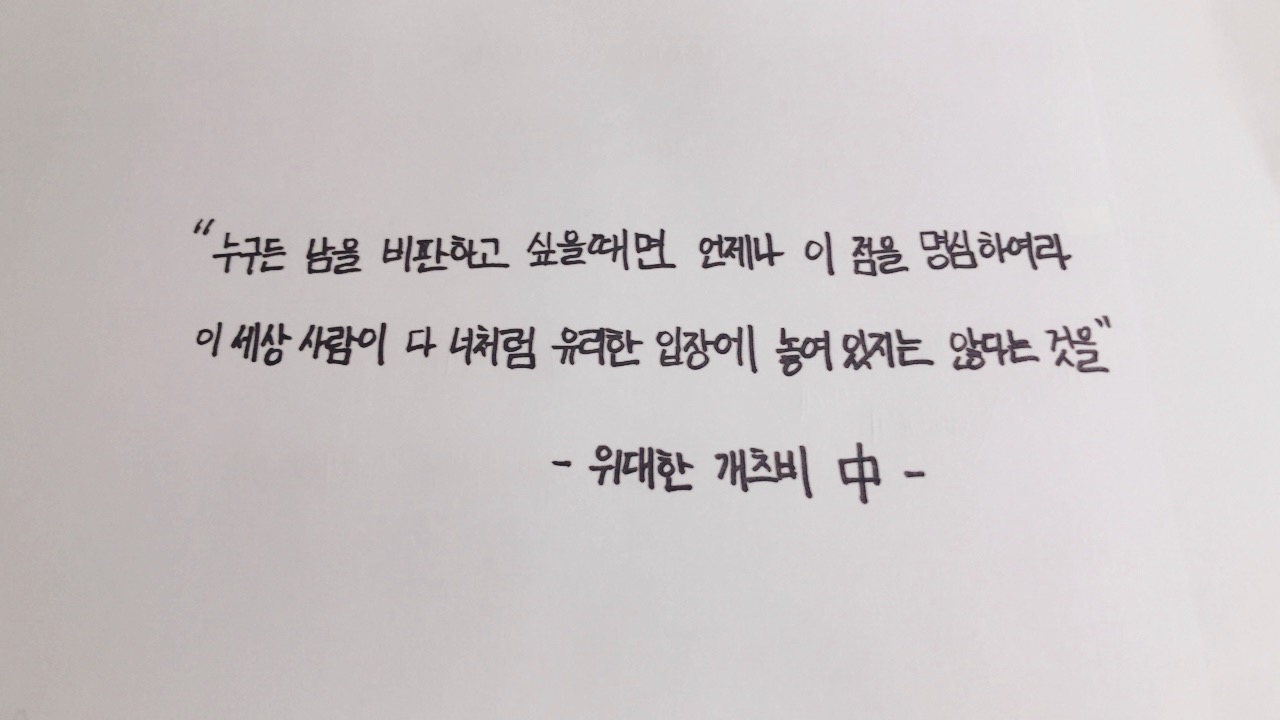 “누구든 남을 비판하고 싶을때면 언제나 이 점을 명심하여라
이 세상 사람이 다 너처럼 유리한 입장에 놓여 있지는 않다는 것을”
- 위대한 개츠비 中 -